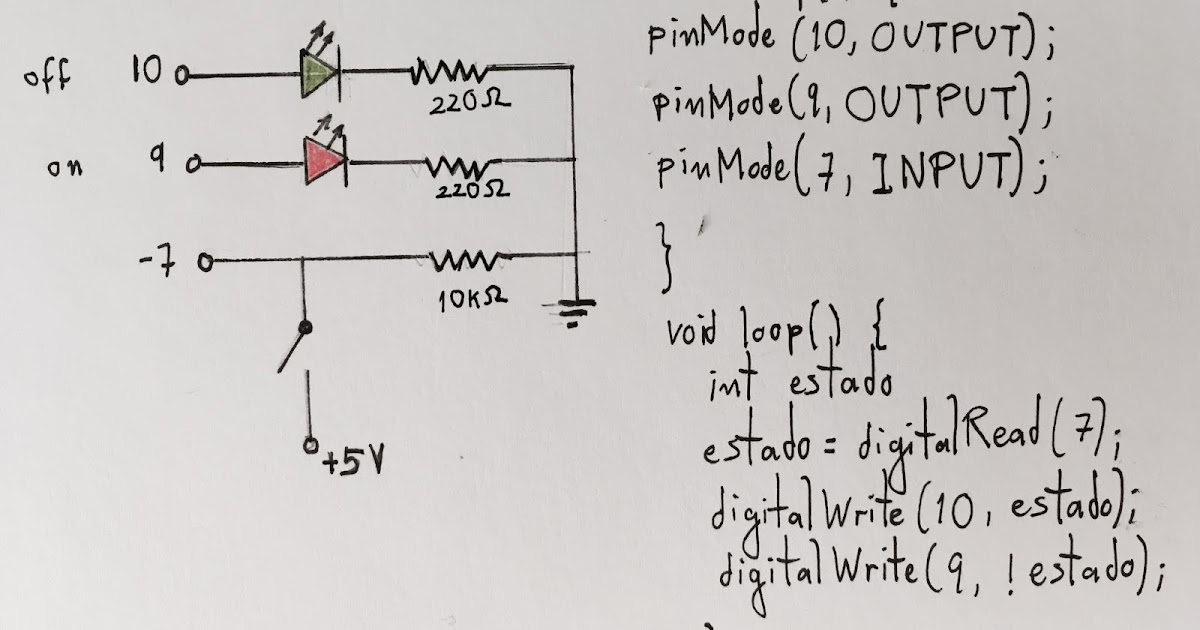 off 10
220Ω
on 9
220Ω
-7
10KΩ
+5V
pinMode (10, OUTPUT);
pinMode(9, OUTPUT);
pinMode(7, INPUT);
}
void loop() {
int estado
estado = digitalRead(7);
digitalWrite(10, estado);
digitalWrite(9, !estado);